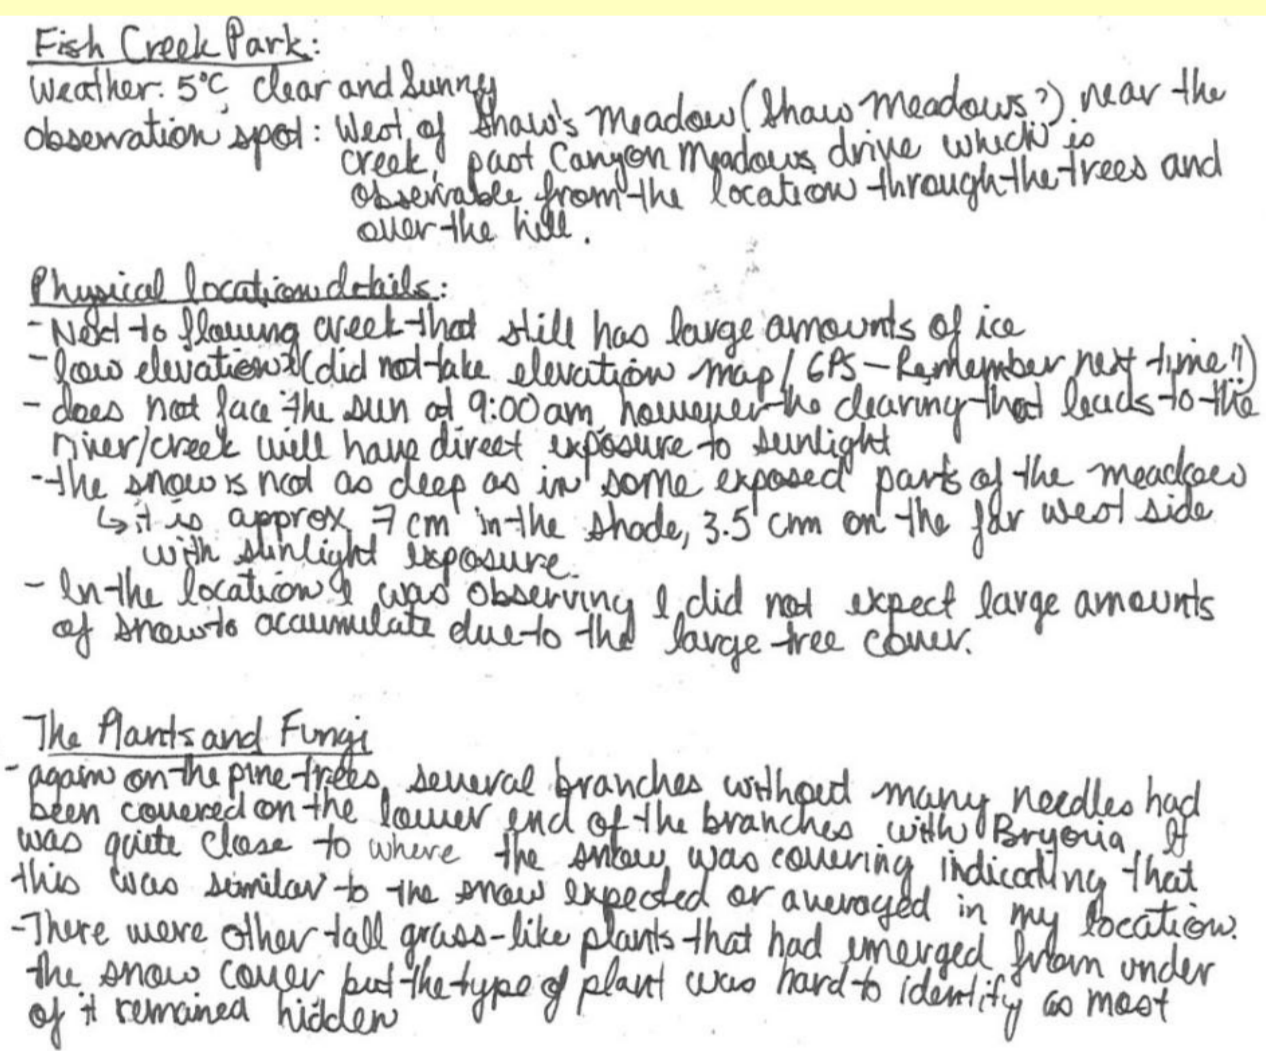 Fish Creek Park:
Weather: 5°C, clear and Sunny
Observation spot: West of Shaw's Meadow (Shaw Meadows?) near the
creek, past Canyon Meadows drive which is
observable from the location through the trees and
over the hill.
Physical location details:
- Next to flowing creek that still has large amounts of ice
- low elevation (did not take elevation map / GPS - Remember next time!!)
- does not face the sun at 9:00am, however the clearing that leads to the
river/creek will have direct exposure to sunlight
- the snow is not as deep as in some exposed parts of the meadow
↳ it is approx 7 cm in the shade, 3.5 cm on the far west side
with sunlight exposure.
- In the location I was observing I did not expect large amounts
of snow to accumulate due to the large tree cover.
The Plants and Fungi
- again on the pine trees, several branches without many needles had
been covered on the lower end of the branches with Bryoria. It
was quite close to where the snow was covering indicating that
this was similar to the snow expected or averaged in my location.
- There were other tall grass-like plants that had emerged from under
the snow cover but the type of plant was hard to identify as most
of it remained hidden